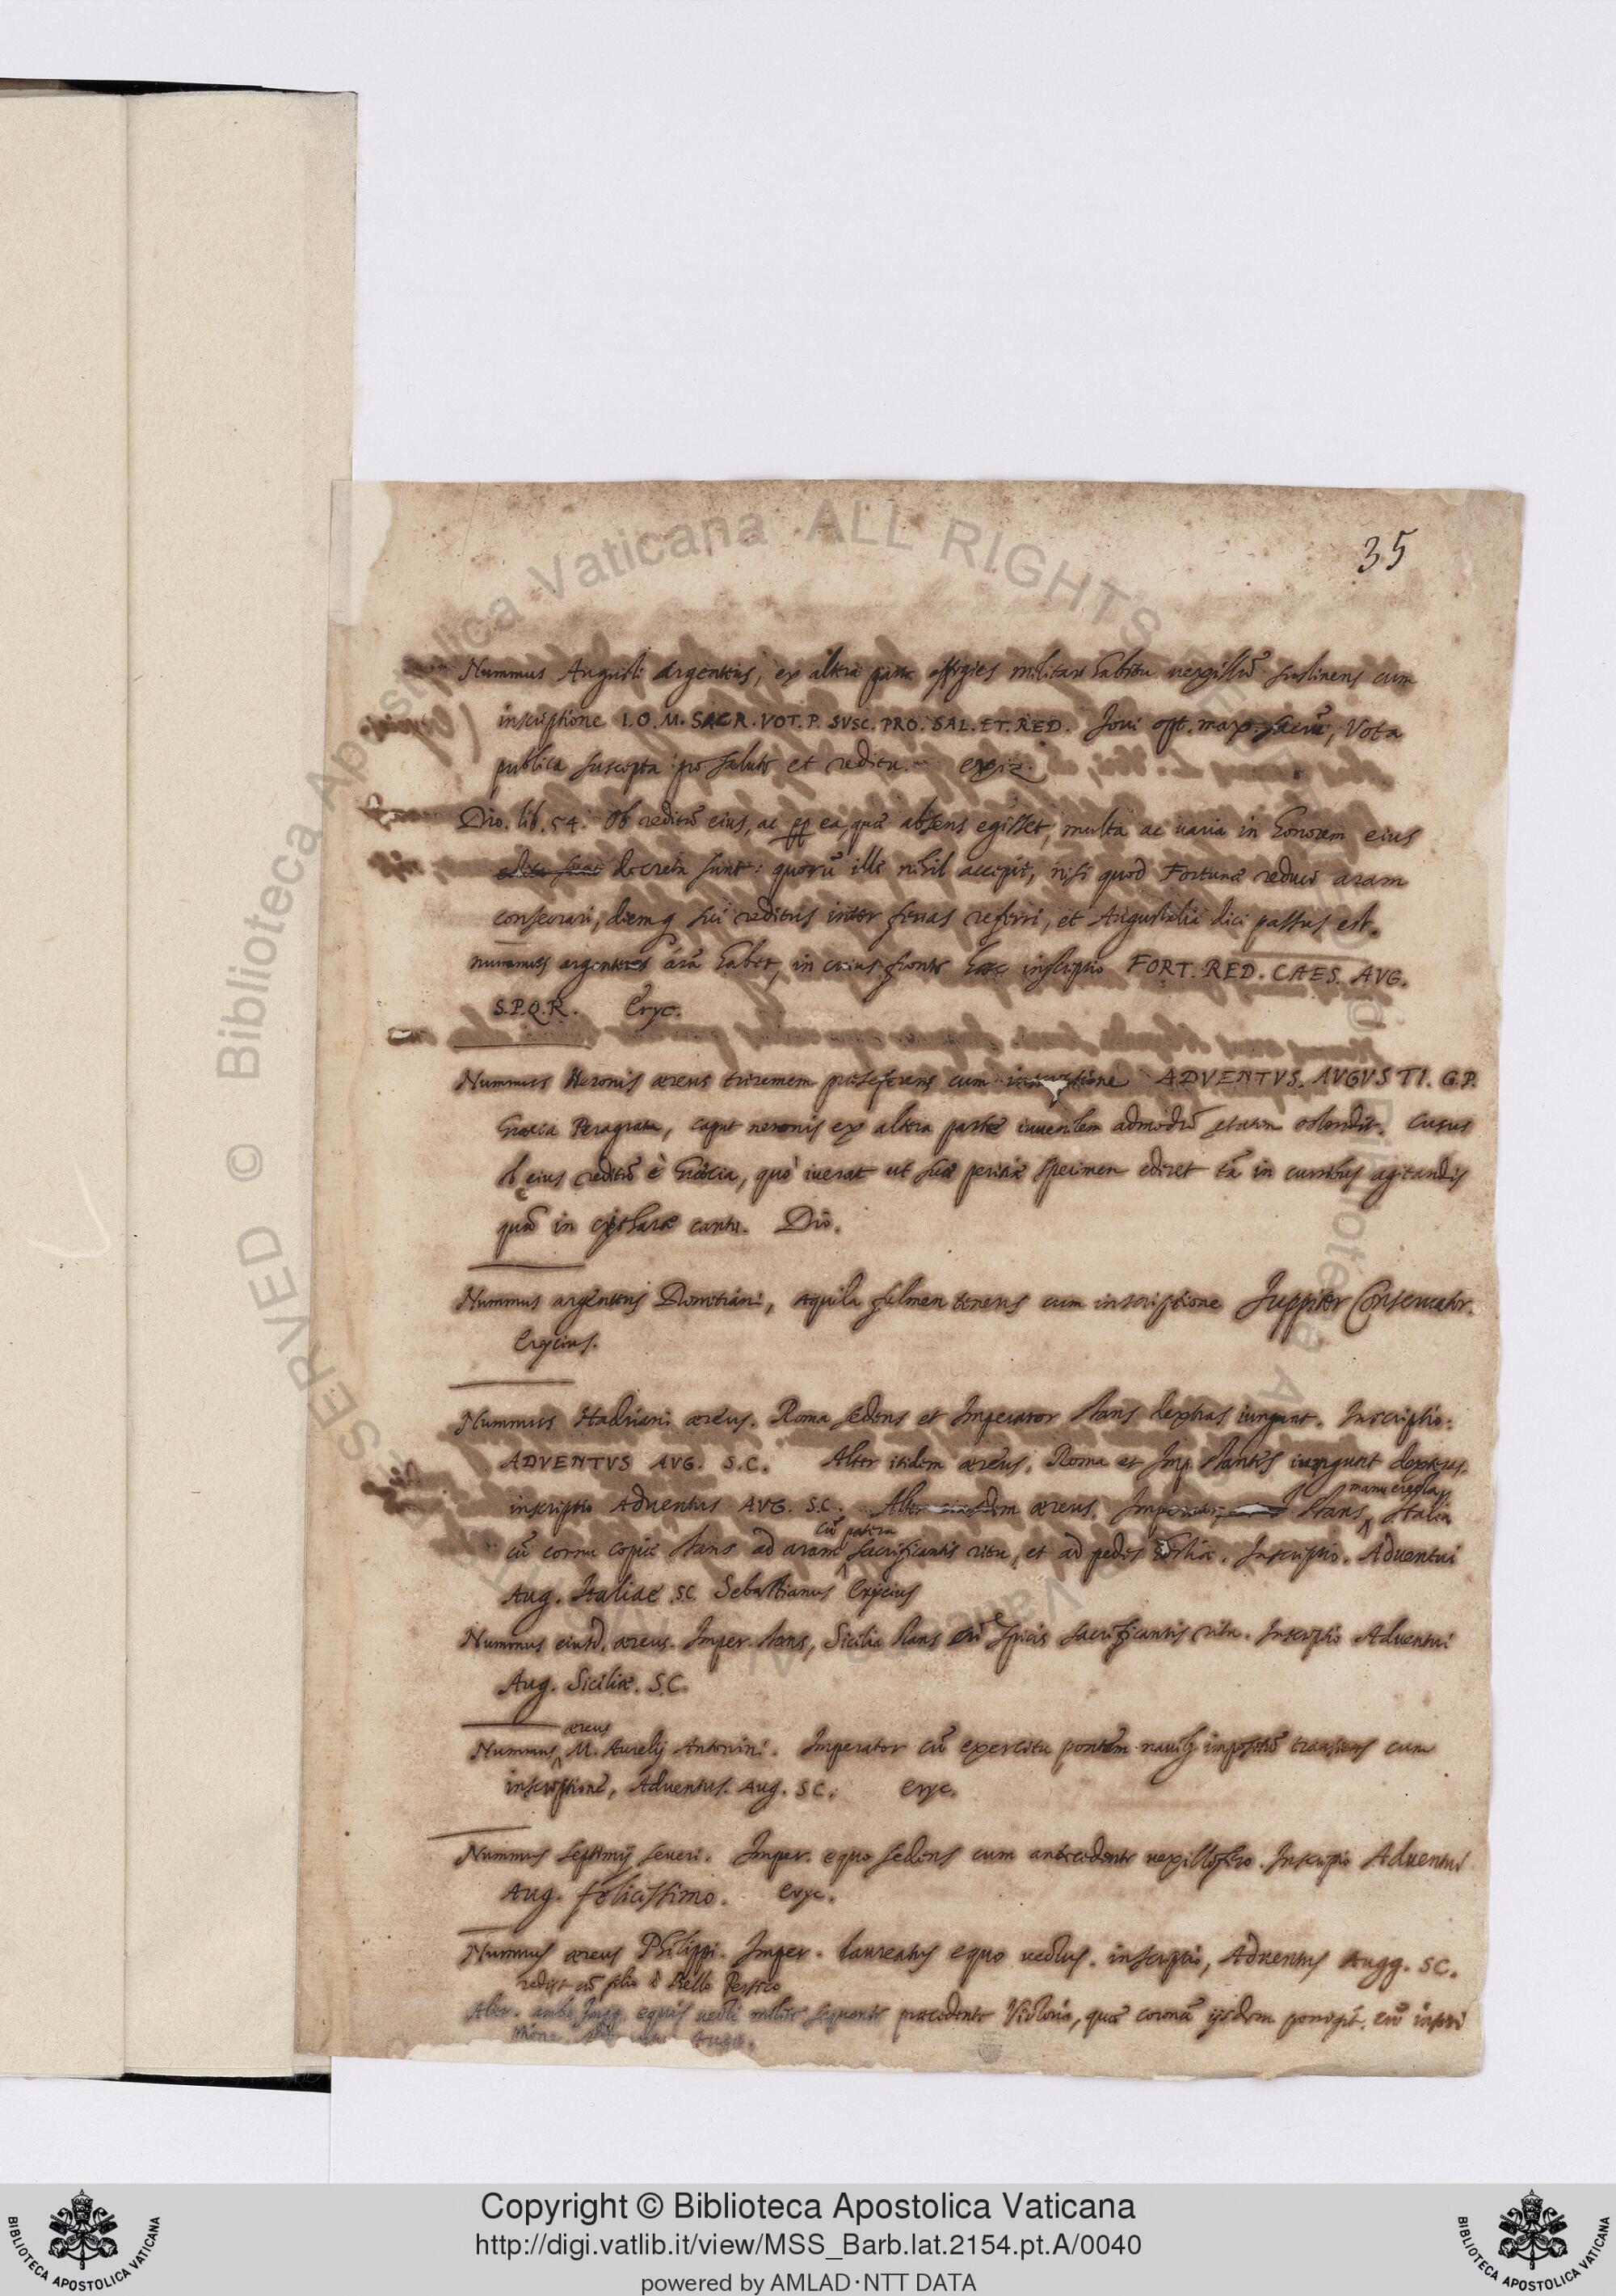 35
Nummus Augusti argenteus, ex altera parte effigies militari habitu vexillũ sustinens cum
inscriptione I.O.M. SACR. VOT. P. SVSC. PRO. SAL. ET. RED. Jovi opt. max. sacrũ, Vota
publica suscepta pro salute et reditu.
Dio. lib. 54. Ob reditũ eius, ac ea, quæ absens egisset, multa ac varia in honorem eius
decreta sunt: quorũ ille nihil accepit, nisi quod Fortunæ reduci aram
consecrari, diemq sui reditus inter ferias referri, et Augustalia dici passus est.
nummus argenteus arã habet, in cuius fronte hæc inscriptio FORT. RED. CAES. AVG.
S.P.Q.R. Eryc.
Nummus Neronis æreus triremem præferens cum inscriptione ADVENTVS. AVGVSTI. G.P.
Græcia Peragrata, caput neronis ex altera parte iuvenilem admodũ ostendit. cusus
ob eius reditũ è Græcia, quò iverat ut suæ peritiæ specimen ederet tã in curribus agitandis
quã in cytharæ cantu. Dio.
Nummus argenteus Domitiani, Aquila fulmen tenens cum inscriptione Juppiter Conservator.
Erycius.
Nummus Hadriani æreus. Roma sedens et Imperator stans dextras iungunt. Inscriptio.
ADVENTVS AVG. S.C. Alter itidem æreus. Roma et Imp. stantes iungunt dextras.
inscriptio Adventus AVG. S.C. Alter eiusdem æreus. Imperator stans manu erecta, Italia
cũ cornu copiæ stans ad aram cũ patera sacrificantis ritu, et ad pedes hostia. Inscriptio. Adventui
Aug. Italiae S.C. Sebastianus Erycius
Nummus eiusd. æreus. Imper. stans, Sicilia stans cũ spicis sacrificantis ritu. Inscriptio Adventui
Aug. Siciliæ. S.C.
Nummus æreus M. Aurelij Antonini. Imperator cũ exercitu pontem navib impositũ transiens cum
inscriptione, Adventus. Aug. S.C. Eryc.
Nummus Septimij Severi. Imper. equo sedens cum antecedente vexillifero. Inscriptio Adventui
Aug. felicissimo. Eryc.
Nummus æreus Philippi. Imper. laureatus equo vectus. inscriptio, Adventus Augg. SC.
redijt cũ filio è bello Persico
Alter. ambo equis vecti milite sequente præcedente Victoria, quæ coronã ijsdem porrigit. cũ inscri
Augg.
Copyright © Biblioteca Apostolica Vaticana
http://digi.vatlib.it/view/MSS_Barb.lat.2154.pt.A/0040
powered by AMLAD·NTT DATA